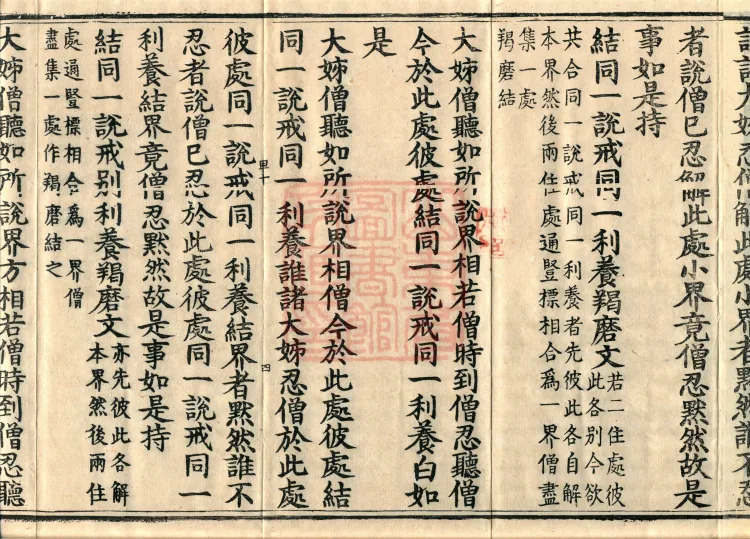 大姊忍僧解此處小界者默然誰不忍
者說僧已忍解此處小界竟僧忍默然故是
事如是持
結同一說戒同一利養羯磨文若二住處彼
此各別今欲
共合同一說戒同一利養者先彼此各自解
本界然後兩住處通豎標相合爲一界僧盡
集一處
羯磨結
大姊僧聽如所說界相若僧時到僧忍聽僧
今於此處彼處結同一說戒同一利養白如
是
大姊僧聽如所說界相僧今於此處彼處結
同一說戒同一利養誰諸大姊忍僧於此處
十
四
彼處同一說戒同一利養結界者默然誰不
忍者說僧已忍於此處彼處同一說戒同一
利養結界竟僧忍默然故是事如是持
結同一說戒別利養羯磨文亦先彼此各解
本界然後兩住
處通豎標相合爲一界僧
盡集一處作羯磨結之
大姊僧聽如所說界方相若僧時到僧忍聽